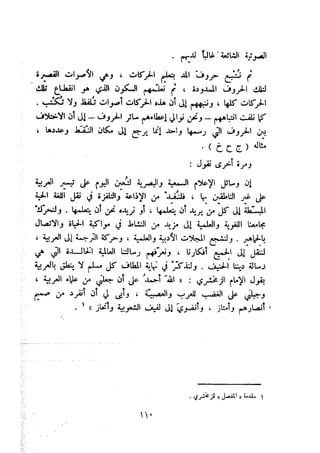 الصوتية الشائعة غالباً لديهم .
ثم نُتْبع حروف المد بتعلم الحركات ، وهي الأصوات القصيرة
لتلك الحروف الممدودة ، ثم نعلمهم السكون الذي هو انقطاع تلك
الحركات كلها ، وننبههم إلى أن هذه الحركات أصوات تُلفظ ولا تُكتب .
كما نلفت انتباههم – ونحن نوالي إعطاءهم سائر الحروف – إلى أن الاختلاف
بين الحروف التي رسمها واحد إنما يرجع إلى مكان النُّقط وعددها ،
مثاله ( ج ح خ ) .
ومرة أخرى نقول :
إن وسائل الإعلام السمعية والبصرية لتُعين اليوم على تيسير العربية
على غير الناطقين بها ، فلنُفد من الإذاعة والتلفزة في نقل اللغة الحية
المبسَّطة إلى كل من يريد أن يتعلمها ، أو نريده نحن أن يتعلمها . ولنحرك
مجامعنا اللغوية والعلمية إلى مزيد من النشاط في مواكبة الحياة والاتصال
بالجماهير . ولنشجع المجلات الأدبية والعلمية ، وحركة الترجمة إلى العربية ،
لننقل إلى الجميع أفكارنا ، ونعرفهم رسالتنا العالمية الخالدة التي هي
رسالة ديننا الحنيف . ولنذكر في نهاية المطاف كل مسلم لا ينطق بالعربية
بقول الإمام الزمخشري : « اللهَ أحمدُ على أن جعلني من علماء العربية ،
وجبلني على الغضب للعرب والعصبيَّة ، وأبى لي أن أنفرد من صميم
أنصارهم وأمتاز ، وأنضويَ إلى لفيف الشعوبية وأنحاز » ١ .
١ مقدمة « المفصل » للزمخشري .
١١٠